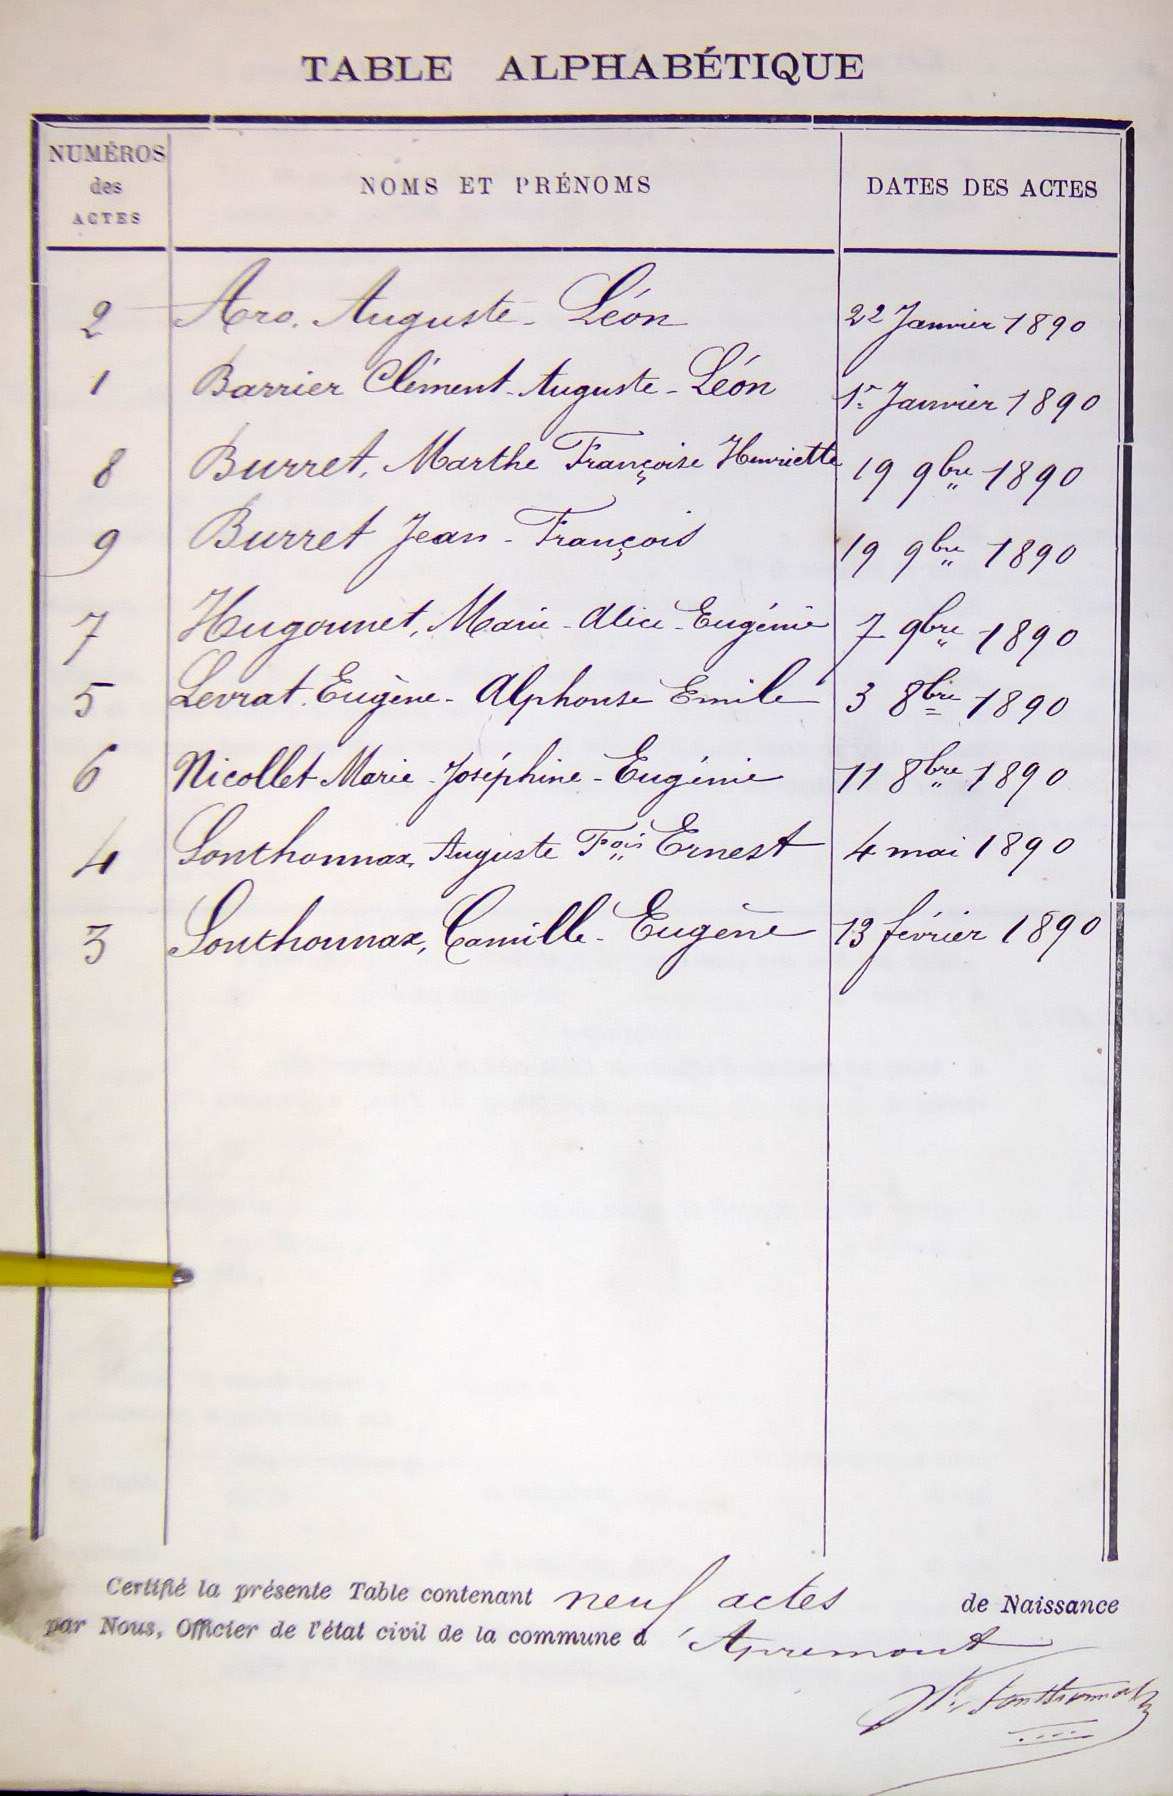 TABLE ALPHABÉTIQUE
NUMÉROS des ACTES NOMS ET PRÉNOMS DATES DES ACTES
2 Aro. Auguste - Léon 22 Janvier 1890
1 Barrier Clément - Auguste - Léon 1er Janvier 1890
8 Burret, Marthe Françoise Henriette 19 9bre 1890
9 Burret Jean - François 19 9bre 1890
7 Hugonnet, Marie - Alice - Eugénie 7 9bre 1890
5 Levrat. Eugène - Alphonse Emile 3 8bre 1890
6 Nicollet Marie - Joséphine - Eugénie 11 8bre 1890
4 Sonthonnax, Auguste Fois Ernest 4 mai 1890
3 Sonthonnax, Camille - Eugène 13 février 1890
Certifié la présente Table contenant neuf actes de Naissance
par Nous, Officier de l'état civil de la commune d'Apremont
Sonthonnax